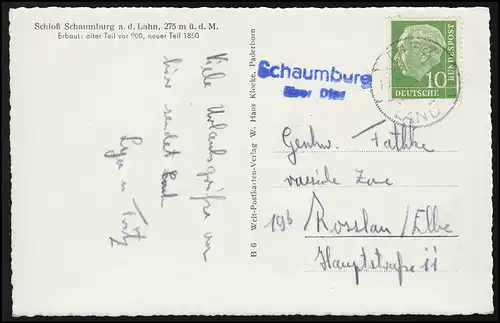 Schloß Schaumburg a. d. Lahn, 275 m ü. d. M.
Erbaut: alter Teil vor 900, neuer Teil 1850
Viele Urlaubsgrüße von
hier sendet Euch
B 6 Welt-Postkarten-Verlag W. Hans Klocke, Paderborn
Schaumburg
über Diez
10
DEUTSCHE
BUNDESPOST
Fathke
19b Rosslau/Elbe
Hauptstraße 11